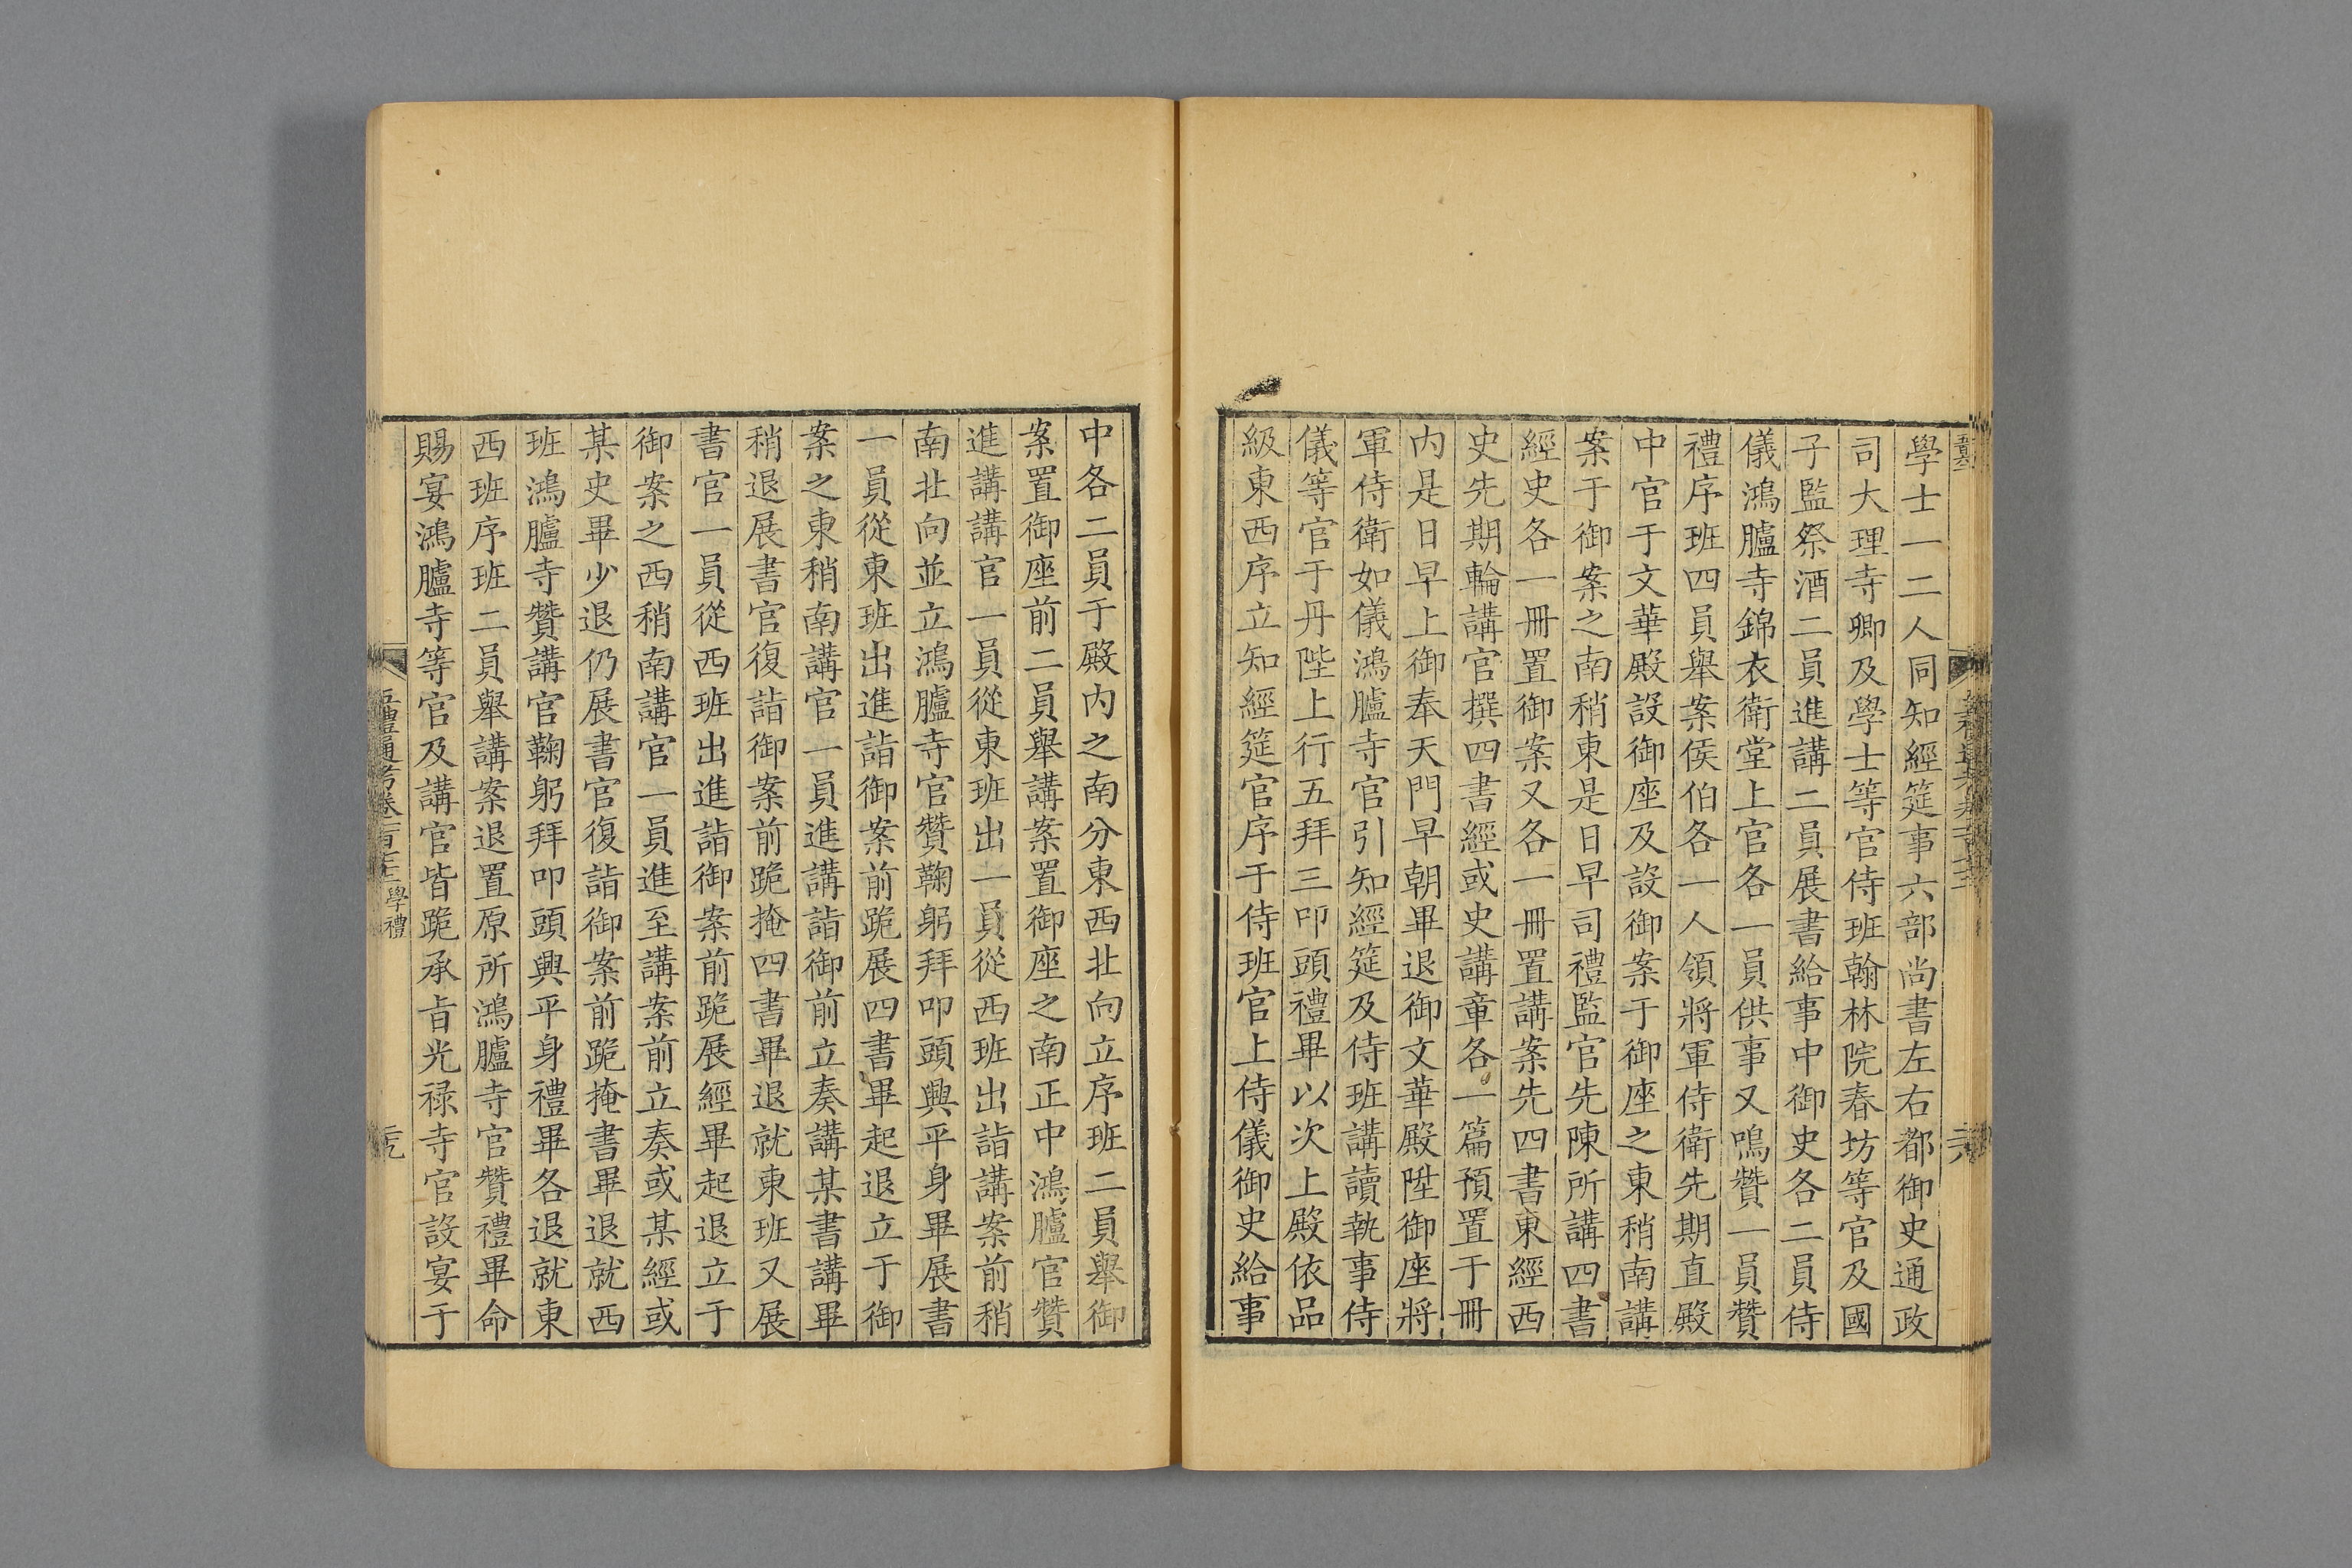 學士一二人同知經筵事六部尚書左右都御史通政
司大理寺卿及學士等官侍班翰林院春坊等官及國
子監祭酒二員進講二員展書給事中御史各二員侍
儀鴻臚寺錦衣衛堂上官各一員供事又鳴贊一員贊
禮序班四員舉案侯伯各一人領將軍侍衛先期直殿
中官于文華殿設御座及設御案于御座之東稍南講
案于御案之南稍東是日早司禮監官先陳所講四書
經史各一冊置御案又各一冊置講案先四書東經西
史先期輪講官撰四書經或史講章各一篇預置于冊
內是日早上御奉天門早朝畢退御文華殿陞御座將
軍侍衛如儀鴻臚寺官引知經筵及侍班講讀執事侍
儀等官于丹陛上行五拜三叩頭禮畢以次上殿依品
級東西序立知經筵官序于侍班官上侍儀御史給事
中各二員于殿內之南分東西北向立序班二員舉御
案置御座前二員舉講案置御座之南正中鴻臚官贊
進講講官一員從東班出一員從西班出詣講案前稍
南北向並立鴻臚寺官贊鞠躬拜叩頭興平身畢展書
一員從東班出進詣御案前跪展四書畢起退立于御
案之東稍南講官一員進講詣御前立奏講某書講畢
稍退展書官復詣御案前跪掩四書畢退就東班又展
書官一員從西班出進詣御案前跪展經畢起退立于
御案之西稍南講官一員進至講案前立奏或某經或
某史畢少退仍展書官復詣御案前跪掩書畢退就西
班鴻臚寺贊講官鞠躬拜叩頭興平身禮畢各退就東
西班序班二員舉講案退置原所鴻臚寺官贊禮畢命
賜宴鴻臚寺等官及講官皆跪承旨光祿寺官設宴于
五禮通考卷一百七十三 學禮